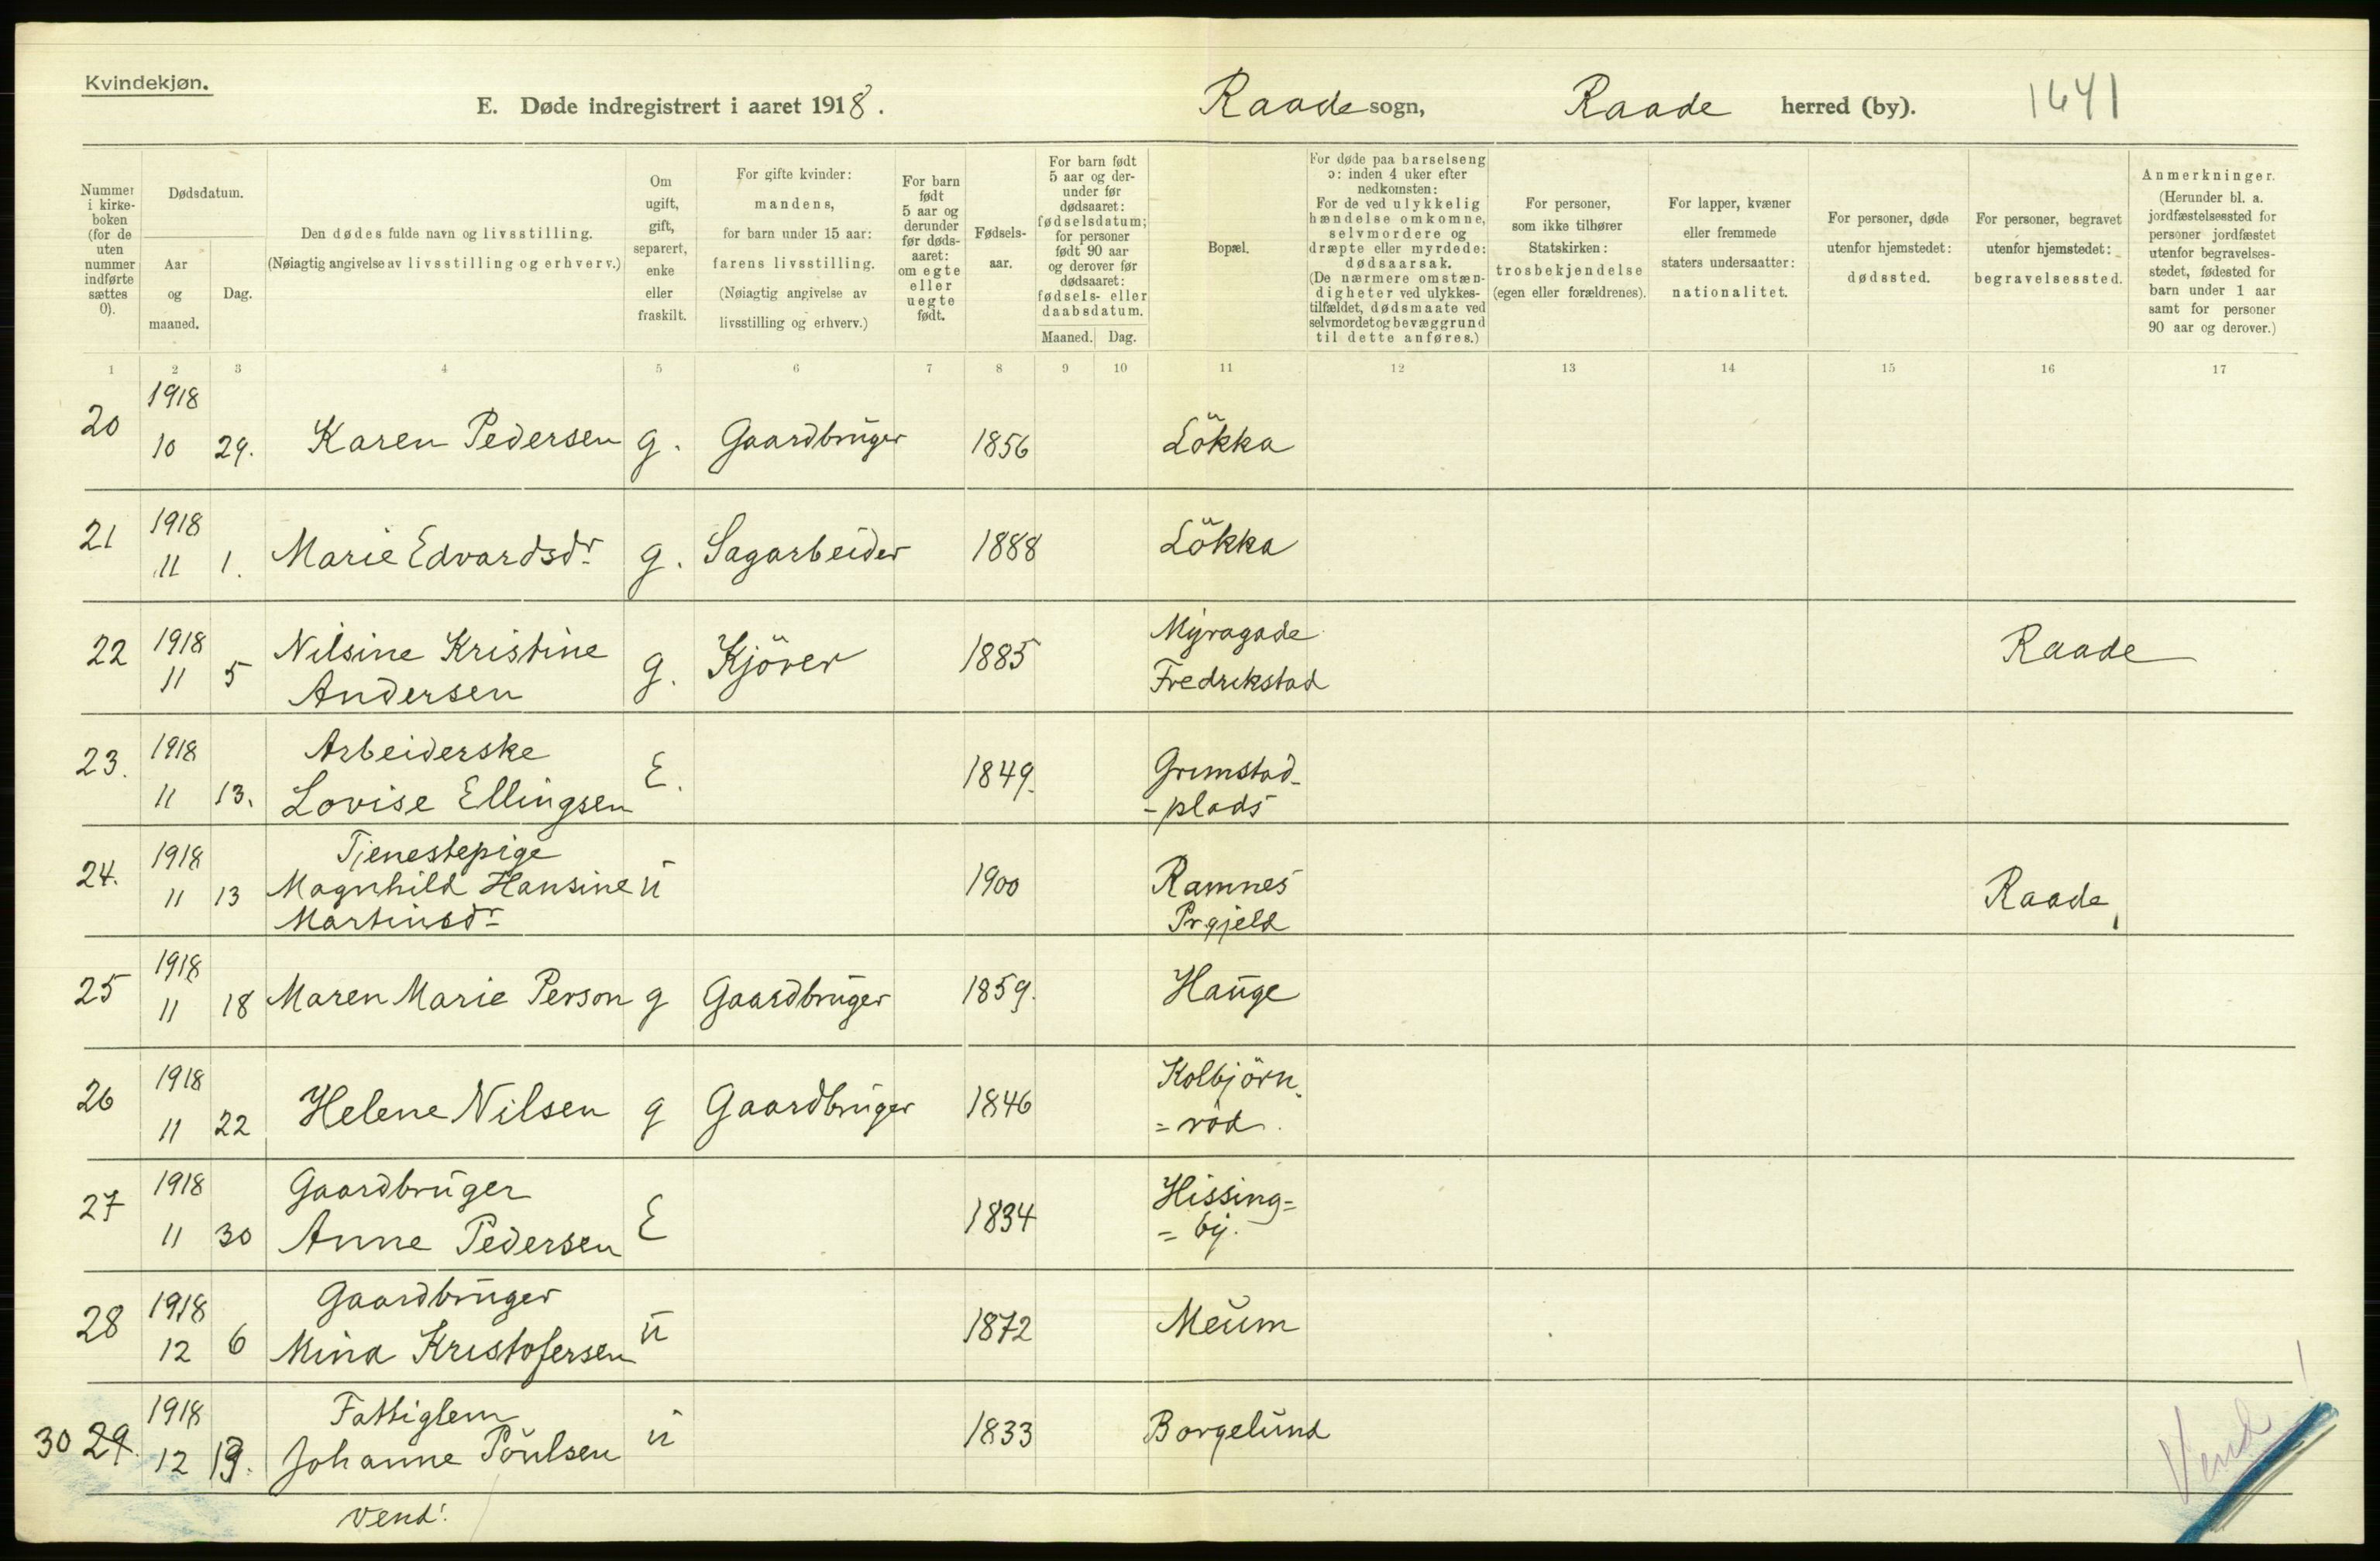 Kvindekjøn.
E. Døde indregistrert i aaret 1918. Raade sogn, Raade herred (by). 1641
Nummer i kirke-boken (for de uten nummer indførte sættes 0).
Dødsdatum.
Aar og maaned.
Dag.
Den dødes fulde navn og livsstilling.
(Nøiagtig angivelse av livsstilling og erhverv.)
Om ugift, gift, separert, enke eller fraskilt.
For gifte kvinder: mandens, for barn under 15 aar: farens livsstilling. (Nøiagtig angivelse av livsstilling og erhverv.)
For barn født 5 aar og derunder før døds-aaret: om egte eller uegte født.
Fødsels-aar.
For barn født 5 aar og der-under før dødsaaret: fødselsdatum; for personer født 90 aar og derover før dødsaaret: fødsels- eller daabsdatum.
Maaned. Dag.
Bopæl.
For døde paa barselseng ɔ: inden 4 uker efter nedkomsten: For de ved ulykkelig hændelse omkomne, selvmordere og dræpte eller myrdede: dødsaarsak. (De nærmere omstæn-digheter ved ulykkes-tilfældet, dødsmaate ved selvmordet og bevæggrund til dette anføres.)
For personer, som ikke tilhører Statskirken: trosbekjendelse (egen eller forældrenes).
For lapper, kvæner eller fremmede staters undersaatter: nationalitet.
For personer, døde utenfor hjemstedet: dødssted.
For personer, begravet utenfor hjemstedet: begravelsessted.
Anmerkninger. (Herunder bl. a. jordfæstelsessted for personer jordfæstet utenfor begravelses-stedet, fødested for barn under 1 aar samt for personer 90 aar og derover.)
1 2 3 4 5 6 7 8 9 10 11 12 13 14 15 16 17
20 1918 10 29. Karen Pedersen g. Gaardbruger 1856 Lökka
21 1918 11 1. Marie Edvardsdr g. Sagarbeider 1888 Lökka
22 1918 11 5 Nilsine Kristine Andersen g. Kjörer 1885 Myragade Fredrikstad Raade
23. 1918 11 13. Arbeiderske Lovise Ellingsen E. 1849. Grimstad- -plads
24. 1918 11 13 Tjenestepige Magnhild Hansine Martinsdr u 1900 Ramnes Prgjeld Raade
25 1918 11 18 Maren Marie Person g Gaardbruger 1859. Hauge
26 1918 11 22 Helene Nilsen g Gaardbruger 1846 Kolbjörn- =röd.
27 1918 11 30 Gaardbruger Anne Pedersen E 1834 Hissing= =by.
28 1918 12 6 Gaardbruger Mina Kristofersen u 1872 Meum
30 29. 1918 12 19. Fattiglem Johanne Poulsen u 1833 Borgelund
Vend!
Vend!